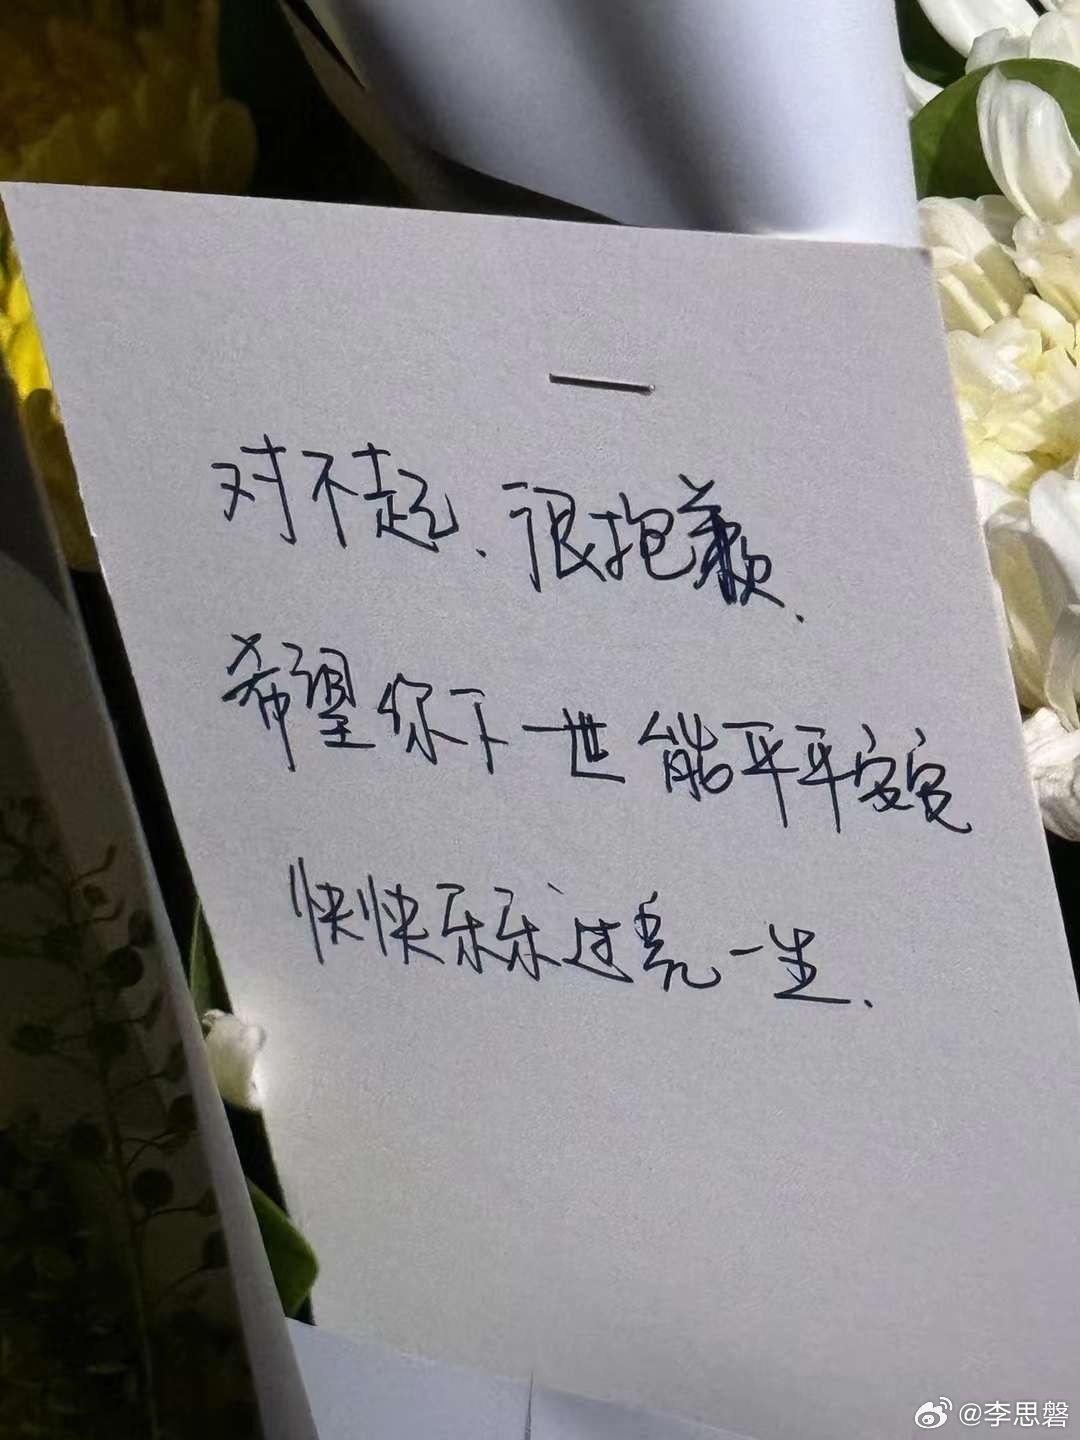 对不起、很抱歉、
希望你下一世能平平安安
快快乐乐过完一生、
@李思磐